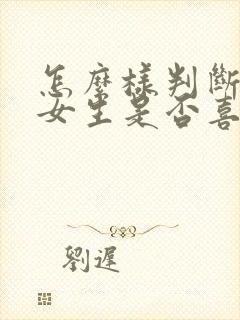 怎麼樣判斷
女生是否喜
劉遲